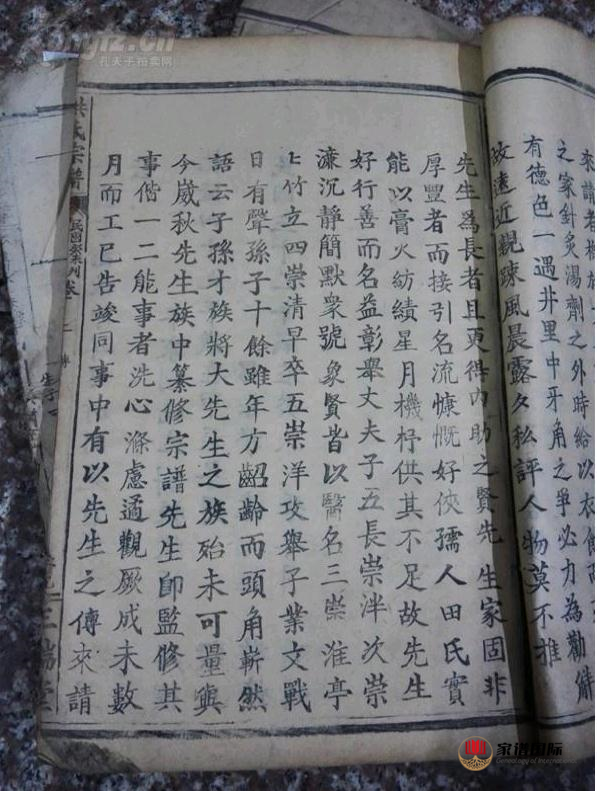 來請者
之家針灸湯劑之外時給以衣
有德色一遇井里中牙角之爭必力為勸解
故遠近親踈風晨露夕私評人物莫不推
先生為長者且更得內助之賢先生家固非
厚豐者而接引名流慷慨好俠孺人田氏實
能以膏火紡績星月機杼供其不足故先生
好行善而名益彰舉丈夫子五長崇泮次崇
濂沉靜簡默衆號象賢皆以醫名三崇淮亭
亭竹立四崇清早卒五崇洋攻舉子業文戰
日有聲孫子十餘雖年方齠齡而頭角嶄然
語云子孫才族將大先生之族殆未可量與
今歲秋先生族中纂修宗譜先生卽監修其
事偕一二能事者洗心滌慮遹觀厥成未數
月而工已告竣同事中有以先生之傳來請
洪氏宗譜
卷二
三瑞堂
孔夫子拍卖网
家谱国际